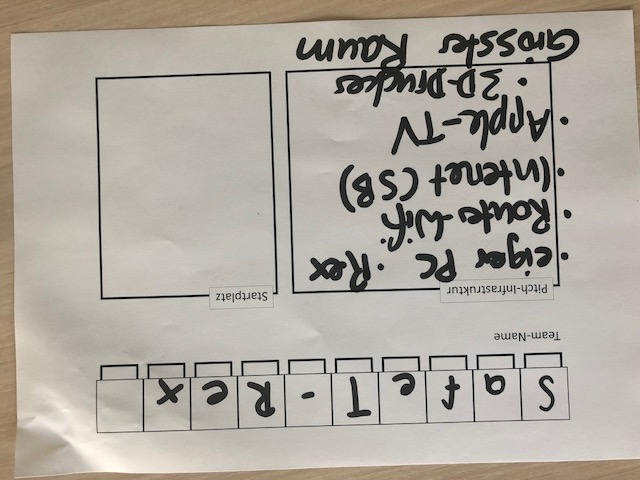 SafeT-Rex
Team-Name
Pitch-Infrastruktur
Startplatz
· eiger PC · Rex
· Router-Wifi
· Internet (SB)
· Apple-TV
· 3D-Drucker
Grösster Raum